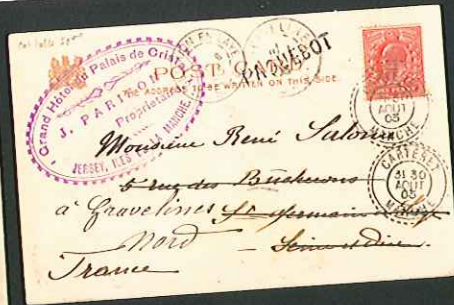 Grand Hôtel du Palais de Cristal
J. PARIOT
Propriétaire
JERSEY, ILES DE LA MANCHE
POST CARD
THE ADDRESS TO BE WRITTEN ON THIS SIDE.
PAQUEBOT
AOUT
05
MANCHE
CARTERET
31 30
AOUT
05
MANCHE
Monsieur René Salom
5 rue des Bûcherons
à Gravelines St Germain
Nord Seine et Oise
France